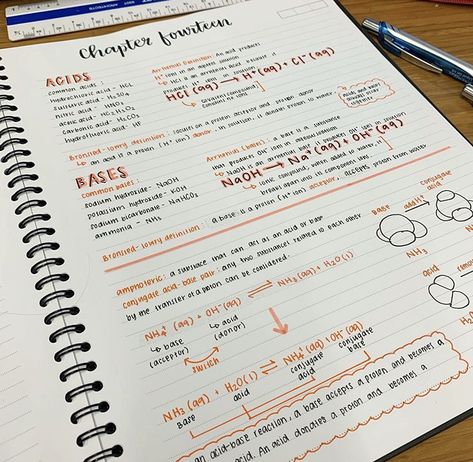 Chapter fourteen
ACIDS
common acids:
hydrochloric acid - HCl
sulfuric acid - H₂SO₄
nitric acid - HNO₃
acetic acid -
carbonic acid -
hydrofluoric acid - HF
Arrhenius Definition: An acid produces
H⁺ ions in aqueous solution
HCl is an Arrhenius acid, because it
produces H⁺ ions in solution
HCl(aq) → H⁺(aq) + Cl⁻(aq)
covalent compound
contains no ions
Bronsted-lowry definition: focuses on a proton acceptor and proton donor
↳ an acid is a proton (H⁺ ion) donor. in solution, is donates proton to water
BASES
common bases:
sodium hydroxide - NaOH
potassium hydroxide - KOH
sodium bicarbonate - NaHCO₃
ammonia - NH₃
Arrhenius (bases): a base is a substance
that produces OH⁻ ions in
NaOH is an Arrhenius base, produces OH⁻ ion in solution
NaOH → Na⁺(aq) + OH⁻(aq)
↳ ionic compound, when added to water, it
breaks apart into its component ions
Bronsted-lowry definition: a base is a proton (H⁺ ion) acceptor, accepts proton from water
amphoteric: a substance that can act as an acid or base
conjugate acid-base pair: any two substances related to each other
by the transfer of a proton can be considered.
NH₃(aq) + H₂O(l)
NH₄⁺(aq) + OH⁻(aq) ⇌
↳ base
(acceptor)
↳ acid
(donor)
switch
NH₃(aq) + H₂O(l) ⇌ NH₄⁺(aq) + OH⁻(aq)
base
acid
conjugate
acid
conjugate
base
base
add H⁺
conjugate
acid
NH₃
acid
remove
NH₃
an acid-base reaction, a base accepts a proton and becomes a
acid. An acid donates a proton and becomes a